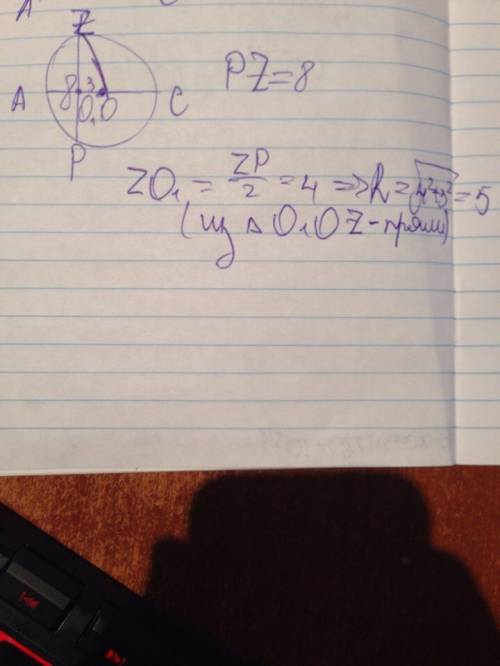 Z
PZ=8
A 8 3 O₁ O C
P
ZO₁ = ZP/2 = 4 => R = √4²+3² = 5
(из △ O₁OZ-прям)